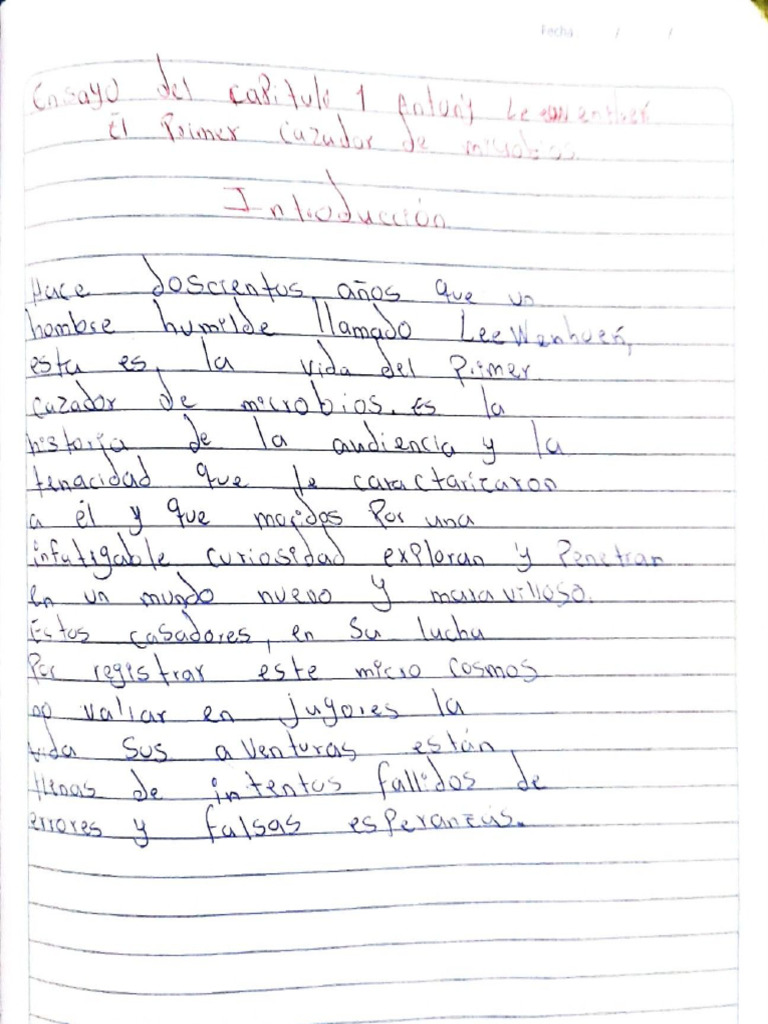 Fecha / /
Ensayo del capitulo 1 Antonj Leeuwenhuek
El Primer Cazador de microbios.
Introducción
Hace doscientos, años que un
hombre humilde llamado LeeWenhuek,
esta es, la vida del Primer
cazador de microbios. Es la
historia de la audiencia y la
tenacidad que le caractarizaron
a él y que movidos Por una
infatigable curiosidad exploran y Penetran
en un mundo nuevo y maravilloso.
Estos casadores, en su lucha
Por registrar este micro cosmos
no valiar en jugores la
vida sus aventuras están,
llenas de intentos fallidos de
errores y falsas esperanzas.